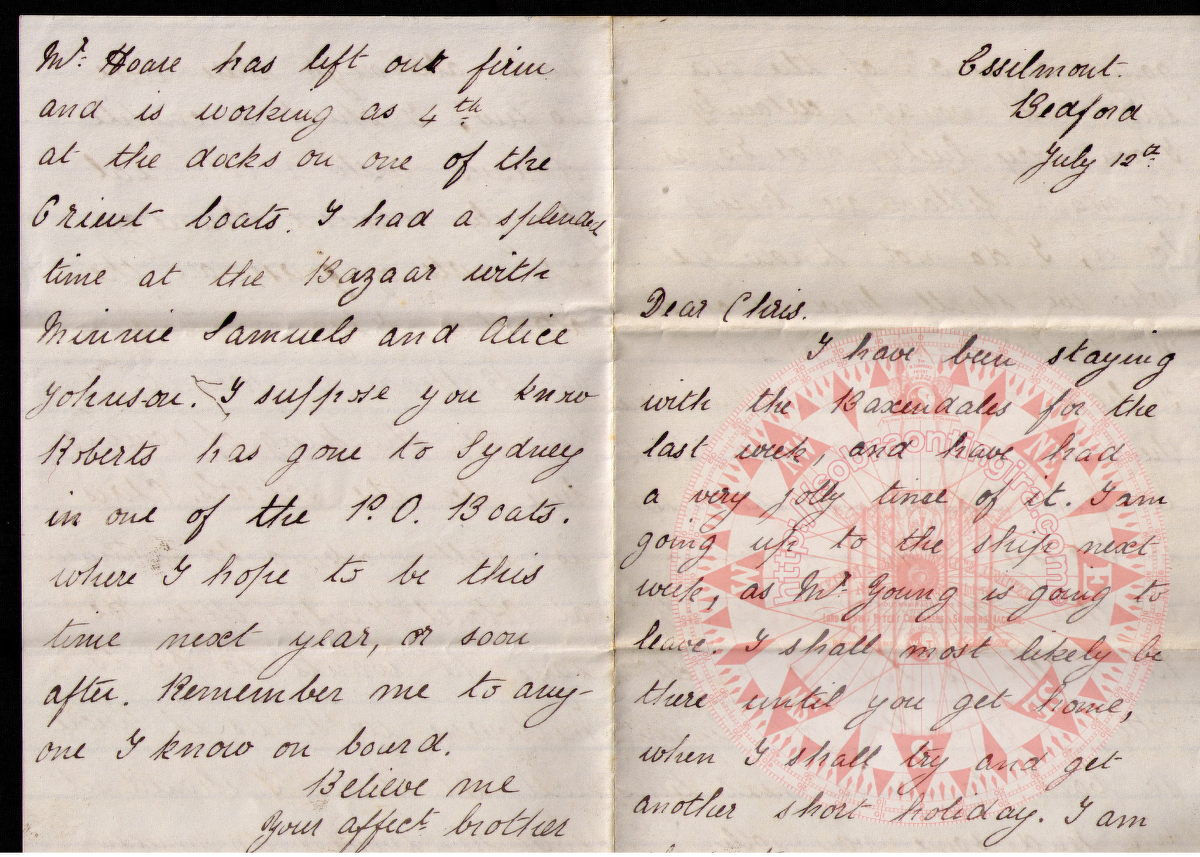 Essilmont.
Bedford
July 12th
Dear Chris.
I have been staying
with the Baxendales for the
last week, and have had
a very jolly time of it. I am
going up to the ship next
week, as Mr. Young is going to
leave. I shall most likely be
there until you get home,
when I shall try and get
another short holiday. I am
Mr. Hoare has left our firm
and is working as 4th
at the docks on one of the
Orient boats. I had a splendid
time at the Bazaar with
Minnie Samuels and Alice
Johnson. I suppose you know
Roberts has gone to Sydney
in one of the P. O. Boats.
where I hope to be this
time next year, or soon
after. Remember me to any-
one I know on board.
Believe me
Your affect. brother